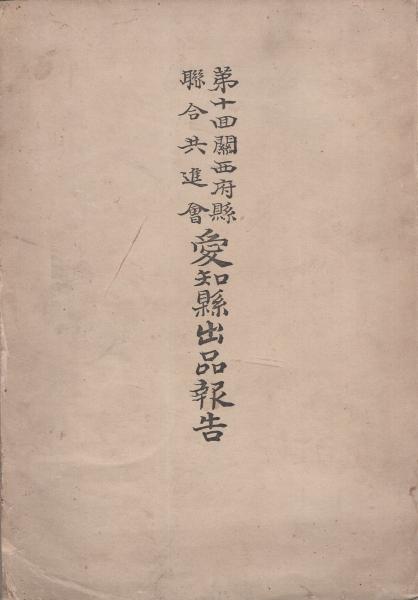 第十回關西府縣
聯合共進會
愛知縣出品報告